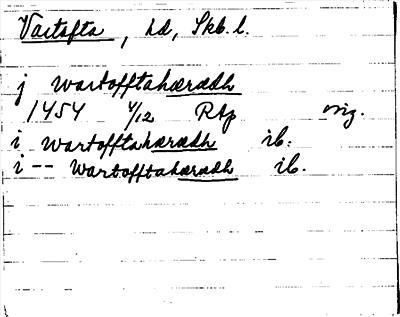 Vartofta, hd, Skb. l.
j wartofftahærædh
1454 4/12 RAp orig.
i wartofftahærædh ib.
i -- wartofftahærædh ib.